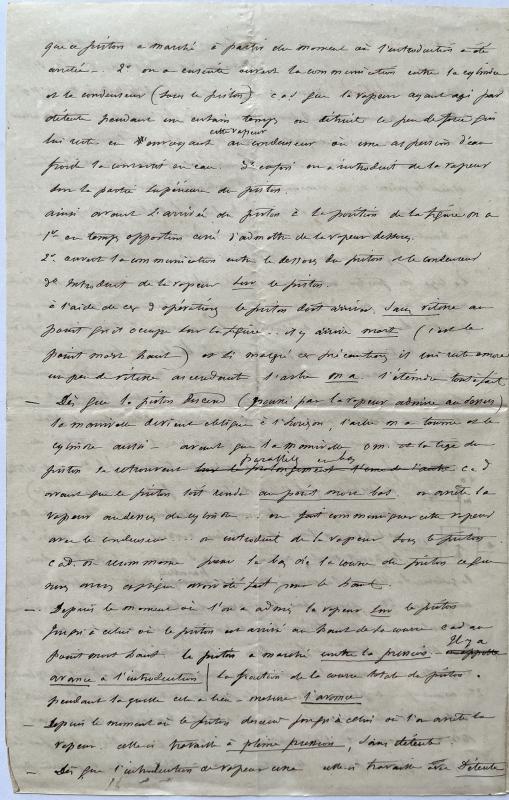 que ce piston a marché à partir du moment où l'introduction a été
arrêtée. 2° on a ensuite ouvert la communication entre le cylindre
et le condenseur (sous le piston) càd que la vapeur ayant agi par
détente pendant un certain temps on détruit ce peu de force qui
lui reste en envoyant cette vapeur au condenseur où une aspersion d'eau
froide la convertit en eau. 3° enfin on a introduit de la vapeur
dans la partie supérieure du piston.
ainsi avant l'arrivée du piston à la position de la figure on a
1° en temps opportun cessé d'admettre de la vapeur dessous.
2° ouvert la communication entre le dessous du piston et le condenseur
3° introduit de la vapeur sur le piston.
à l'aide de ces 3 opérations le piston doit arriver sans vitesse au
point qu'il occupe sur la figure .. il y arrive mort (c'est le
point mort haut) et si malgré ces précautions il lui reste encore
un peu de vitesse ascendante l'arbre on a l'éteindre tout à fait
— Dès que le piston descend (poussé par la vapeur admise au dessus)
la manivelle devient oblique à l'horizon, l'arbre m a tourné et le
cylindre aussi - avant que la manivelle o m et la tige du
piston se retrouvent sur le prolongement l'une de l'autre parallèles en bas c à d
avant que le piston soit rendu au point mort bas on arrête la
vapeur au dessus du cylindre ... on fait communiquer cette vapeur
avec le condenseur .. on introduit de la vapeur sous le piston
c à d. on recommence pour le bas de la course du piston ce que
nous avons expliqué avoir été fait pour le haut
— Depuis le moment où l'on a admis la vapeur sur le piston
jusqu'à celui où le piston est arrivé au haut de sa course c à d au
point mort haut le piston a marché contre la pression - Il y a
avance à l'introduction | la fraction de la course totale du piston.
pendant laquelle cela a lieu - mesure l'avance
— Depuis le moment où le piston descend jusqu'à celui où l'on arrête la
vapeur celle-ci travaille à pleine pression, sans détente.
— Dès que l'introduction de vapeur cesse celle-ci travaille avec Détente